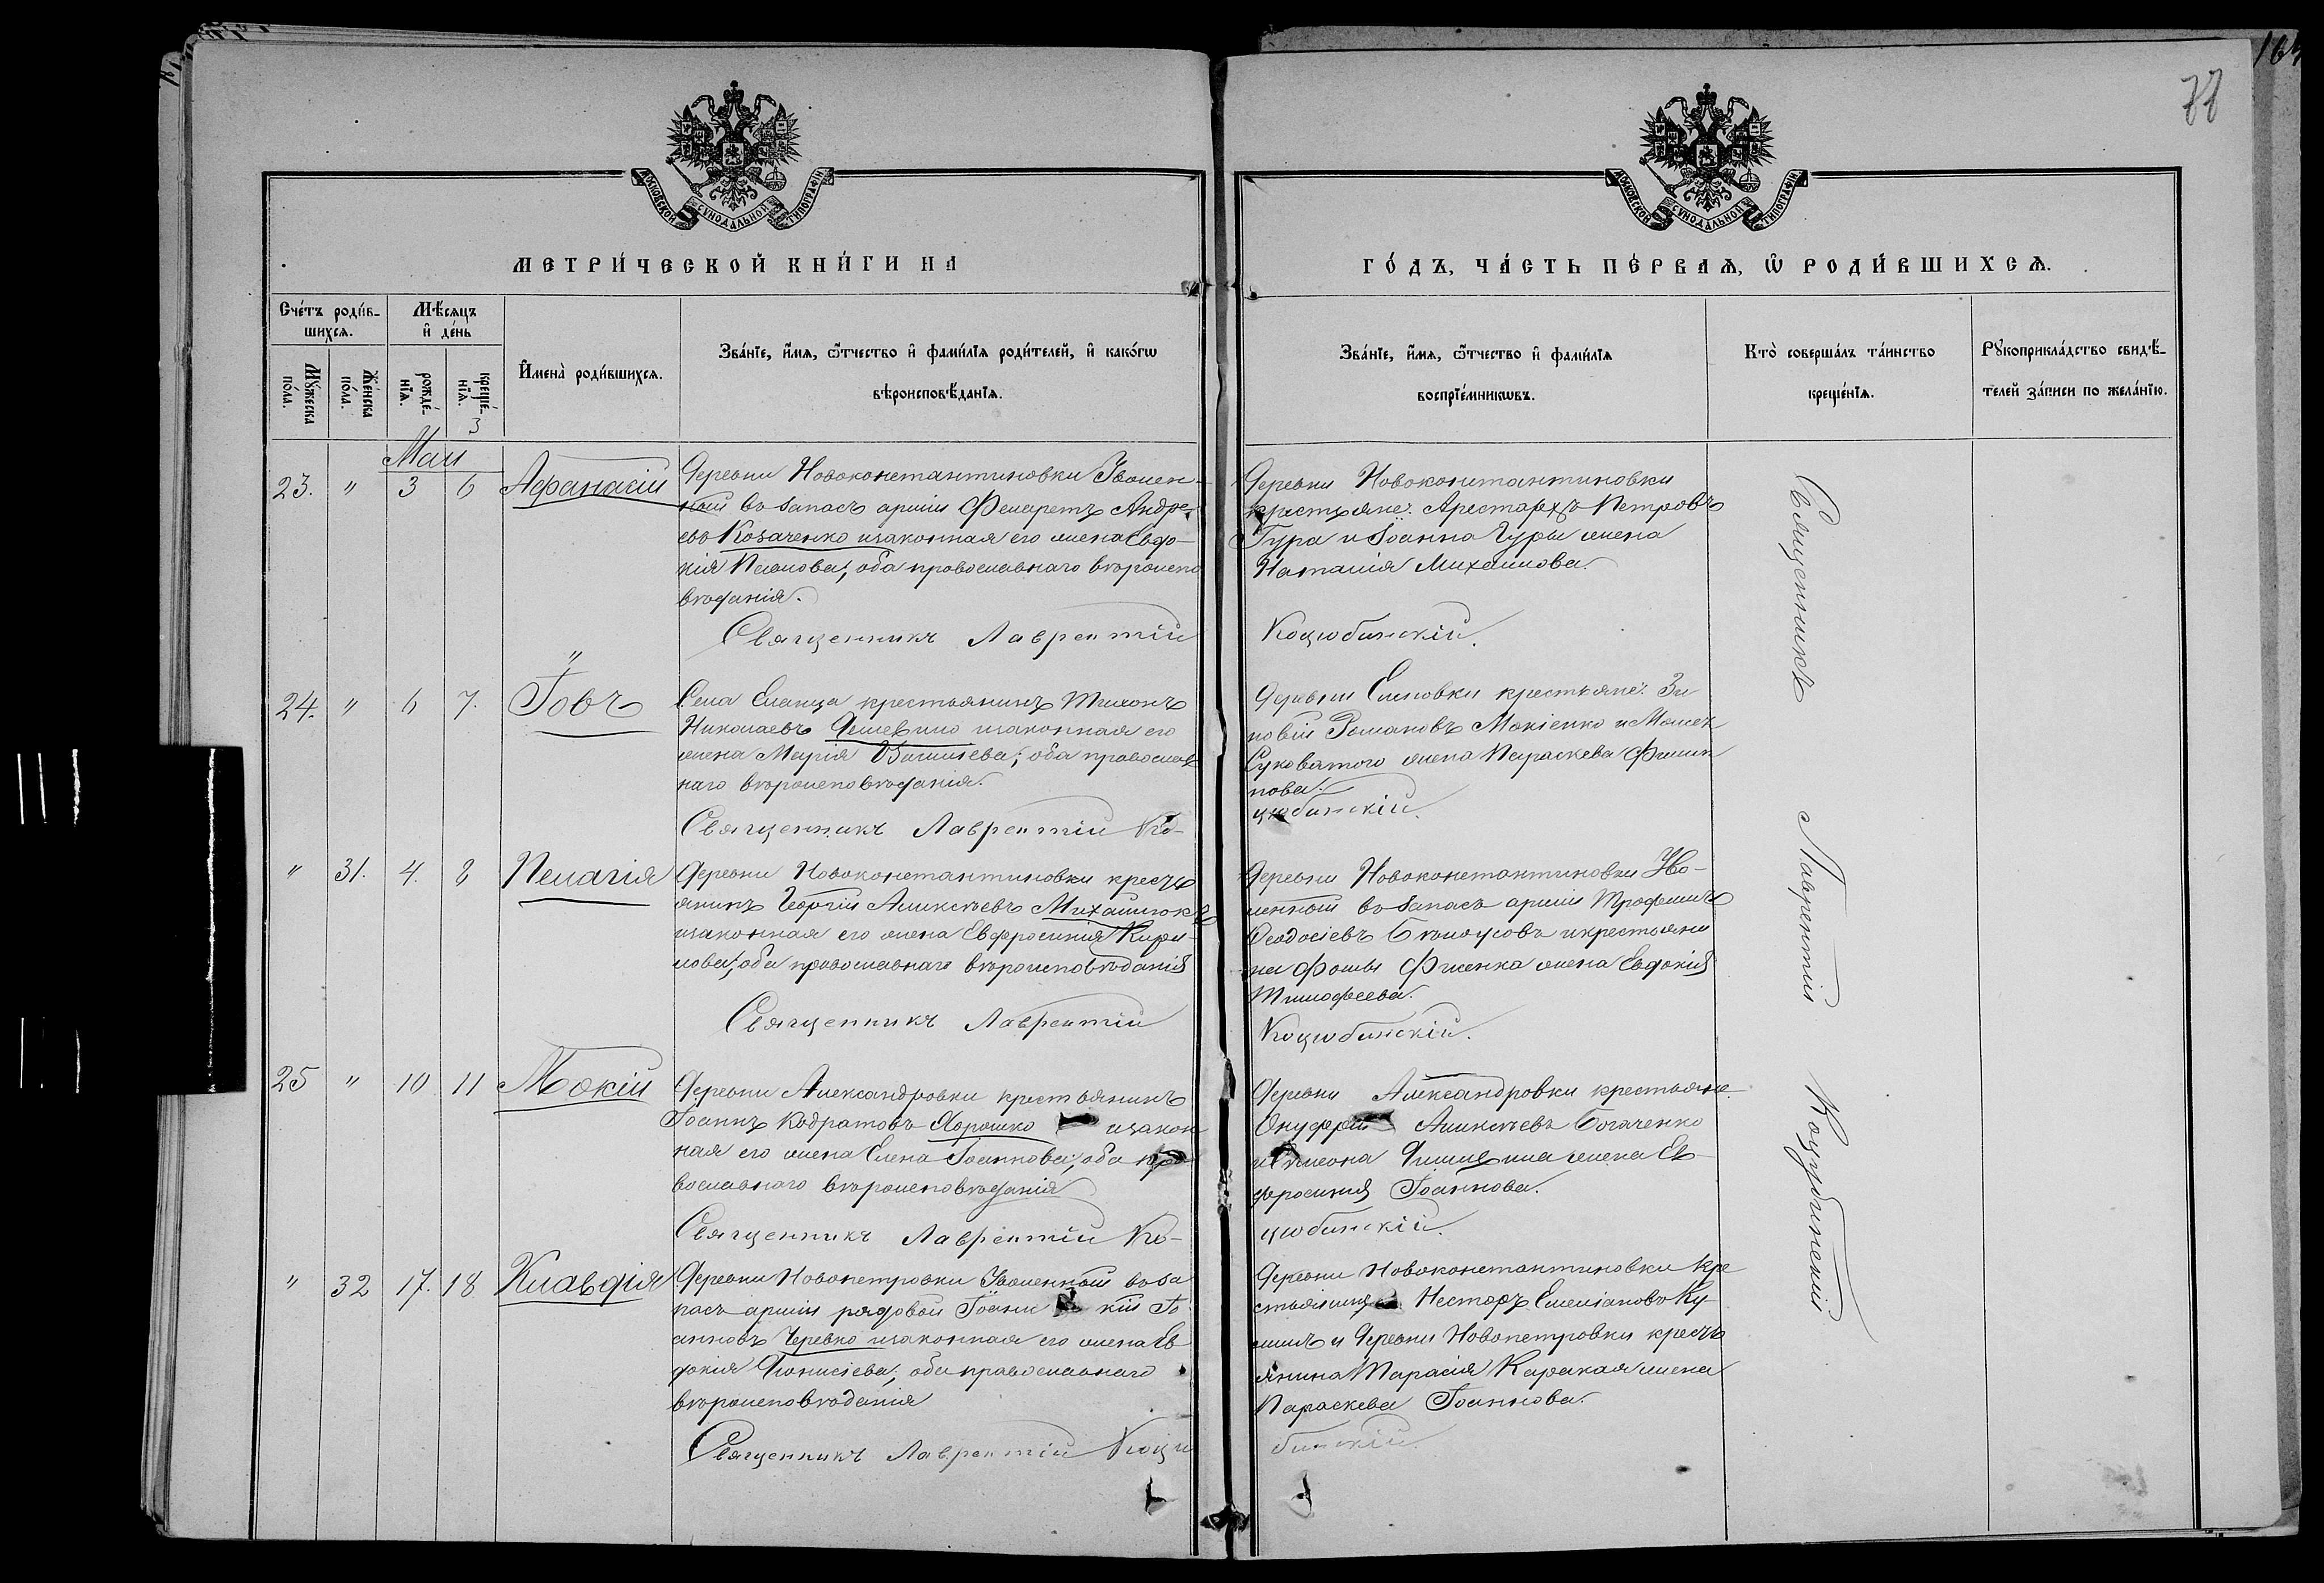 77
МОСКОВСКОЙ СѴНОДАЛЬНОЙ ТИПОГРАФІИ
МОСКОВСКОЙ СѴНОДАЛЬНОЙ ТИПОГРАФІИ
МЕТРИ́ЧЕСКОЙ КНИ́ГИ НА
ГО́ДЪ, ЧА́СТЬ ПЕ́РВАѦ, Ѡ РОДИ́ВШИХСѦ.
Сче́тъ роди́в-
шихсѧ.
Мѣ́сѧцъ
и҆ де́нь
Мꙋ́жеска
по́ла.
Же́нска
по́ла.
рожде́-
нїѧ.
креще́-
нїѧ.
3
И҆мена̀ роди́вшихсѧ.
Зва́нїе, и҆́мѧ, ѻ҆́тчество и҆ фами́лїѧ роди́телей, и҆ како́гѡ
вѣроисповѣ́данїѧ.
Зва́нїе, и҆́мѧ, ѻ҆́тчество и҆ фами́лїѧ
воспрїе́мникѡвъ.
Кто̀ соверша́лъ та́инство
креще́нїѧ.
Рꙋкоприкла́дство свидѣ́-
телей за́писи по жела́нїю.
Маи
23. " 3 6 Афанасій
Деревни Новоконстантиновки Уволен-
ный въ запасъ арміи Филаретъ Андре-
евъ Козаченко изаконная его жена Евдо-
кія Павлова, оба православнаго вѣроиспо
вѣданія.
Священникъ Лаврентій
Деревни Новоконстантиновки
крестьяне: Арестархъ Петровъ
Гура и Іоанна Гуры жена
Наталія Михаилова.
Коцюбинскій.
"
24. " 6 7. Іовъ
Села Еланца крестьянинъ Тихонъ
Николаевъ изаконная его
жена Марія Васильева, оба православ
наго вѣроисповѣданія.
Священникъ Лаврентій Ко-
Деревни Еленовки крестьяне: Зи
новій Романовъ Мокіенко и
Суковатого жена Параскева Филип
пова.
цюбинскій.
" 31. 4. 8 Пелагія
Деревни Новоконстантиновки кресть
янинъ Георгій Алексѣевъ Михайлюкъ
изаконная его жена Евфросинія Кири-
лова, оба православнаго вѣроисповѣданія
Священникъ Лаврентій
Деревни Новоконстантиновки Уво-
ленный въ запасъ арміи Трофимъ
Феодосіевъ Бѣлоусовъ икрестьяни
на Фомы Фисенка жена Евдокія
Тимофеева.
Коцюбинскій.
25 " 10 11 Мокій
Деревни Александровки крестьянинъ
Іоаннъ Кодратовъ Ярошко изакон
ная его жена Елена Іоаннова, оба пра
вославнаго вѣроисповѣданія
Священникъ Лаврентій Ко-
Деревни Александровки крестьяне
Онуфрій Алексѣевъ Богаченко
и Симеона жена Ев
фросинія Іоаннова.
цюбинскій.
" 32 17. 18 Клавдія
Деревни Новопетровки Уволенный въ за
пасъ арміи рядовой Іоанни кій Іо
анновъ Черевко изаконная его жена Ев
докія Діонисіева, оба православнаго
вѣроисповѣданія
Священникъ Лаврентій Коцю
Деревни Новоконстантиновки кре
стьянинъ Несторъ Емеліановъ Ку
и Деревни Новопетровки кресть
янина Тарасія Каракая жена
Параскева Іоаннова.
бинскій
Священникъ Лаврентій Коцюбинскій